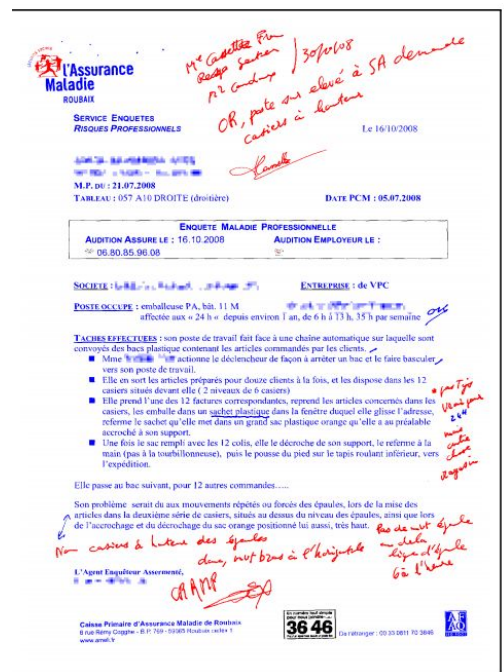 l'Assurance
Maladie
ROUBAIX
30/10/08
OK, poste sur elevé à SA demande
casiers à hauteur
SERVICE ENQUETES
RISQUES PROFESSIONNELS
Le 16/10/2008
M.P. DU : 21.07.2008
TABLEAU : 057 A10 DROITE (droitière) DATE PCM : 05.07.2008
ENQUETE MALADIE PROFESSIONNELLE
AUDITION ASSURE LE : 16.10.2008 AUDITION EMPLOYEUR LE :
06.80.85.96.08
SOCIETE : ENTREPRISE : de VPC
POSTE OCCUPE : emballeuse PA, bât. 11 M
affectée aux « 24 h » depuis environ 1 an, de 6 h à 13 h, 35 h par semaine
TACHES EFFECTUEES : son poste de travail fait face à une chaîne automatique sur laquelle sont
convoyés des bacs plastique contenant les articles commandés par les clients.
■ Mme actionne le déclencheur de façon à arrêter un bac et le faire basculer
vers son poste de travail.
■ Elle en sort les articles préparés pour douze clients à la fois, et les dispose dans les 12
casiers situés devant elle ( 2 niveaux de 6 casiers)
■ Elle prend l'une des 12 factures correspondantes, reprend les articles concernés dans les
casiers, les emballe dans un sachet plastique dans la fenêtre duquel elle glisse l'adresse,
referme le sachet qu'elle met dans un grand sac plastique orange qu'elle a au préalable
accroché à son support.
■ Une fois le sac rempli avec les 12 colis, elle le décroche de son support, le referme à la
main (pas à la tourbillonneuse), puis le pousse du pied sur le tapis roulant inférieur, vers
l'expédition.
Elle passe au bac suivant, pour 12 autres commandes.....
Son problème serait du aux mouvements répétés ou forcés des épaules, lors de la mise des
articles dans la deuxième série de casiers, situés au dessus du niveau des épaules, ainsi que lors
de l'accrochage et du décrochage du sac orange positionné lui aussi, très haut.
Non casiers à hauteur des épaules
donc, mvt bras à l'horizontale
Pas de mvt épaule
au dela
ligne d'épaule
6 à l'heure
L'Agent Enquêteur Assermenté,
CRAMP
Caisse Primaire d'Assurance Maladie de Roubaix
6 rue Rémy Cogghe - B.P. 769 - 59065 Roubaix cedex 1
www.ameli.fr
36 46
De l'étranger : 00 33 0811 70 3646
AFAQ